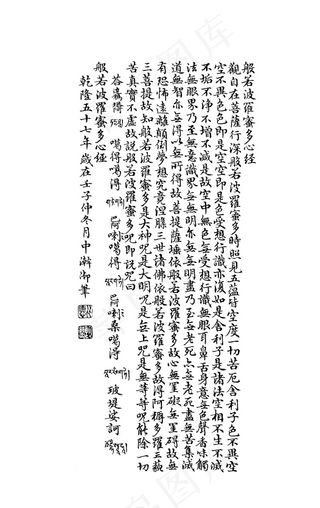 般若波羅蜜多心經
觀自在菩薩行深般若波羅蜜多時照見五蘊皆空度一切苦厄舍利子色不異空
空不異色色即是空空即是色受想行識亦復如是舍利子是諸法空相不生不滅
不垢不淨不增不減是故空中無色無受想行識無眼耳鼻舌身意無色聲香味觸
法無眼界乃至無意識界無無明亦無無明盡乃至無老死亦無老死盡無苦集滅
道無智亦無得以無所得故菩提薩埵依般若波羅蜜多故心無罣礙無罣礙故無
有恐怖遠離顛倒夢想究竟涅槃三世諸佛依般若波羅蜜多故得阿耨多羅三藐
三菩提故知般若波羅蜜多是大神咒是大明咒是無上咒是無等等咒能除一切
苦真實不虛故說般若波羅蜜多咒即說咒曰
得 噶得噶得 喇噶得 喇桑噶得 玻堤娑訶
般若波羅蜜多心經
乾隆五十七年歲在壬子仲冬月中澣御筆